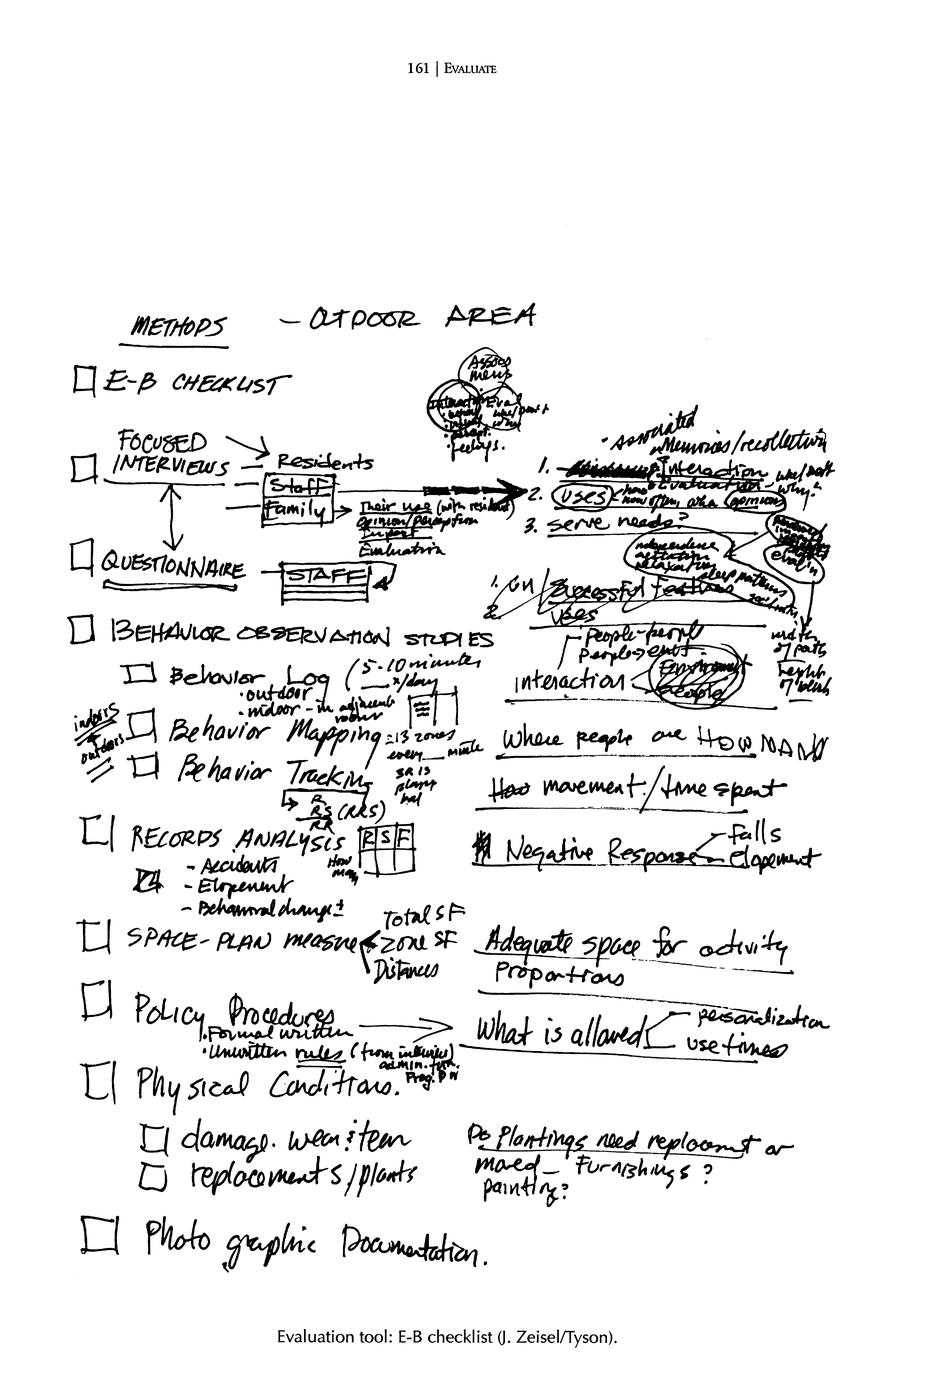 161 | EVALUATE
METHODS — OUTDOOR AREA
E-B CHECKLIST
Assess
ment
Interaction
Eval
feelings.
FOCUSED
INTERVIEWS — Residents
Staff
Family
Their use (with resident)
opinion/perception
Impact
Evaluation
• Associated
Memories/recollection
1. Interaction
Evaluation
why?
2. uses
how often, when opinions
3. serve needs?
independence
sleep patterns
eval'n
QUESTIONNAIRE — STAFF
1. Un/Successful features
2. Uses
BEHAVIOR OBSERVATION STUDIES
People-people
People→envt.
Interaction
Environment
People
width
of paths
height
of
Behavior Log (5-10 minutes
__ x/day)
• outdoor
• indoor - in adjacent
rooms
indoors
+
outdoors
Behavior Mapping = 13 zones
every __ minute
Where people are HOW MANY
Behavior Tracking
R
RS (RRS)
RR
How movement/time spent
RECORDS ANALYSIS
R S F
How
many
- Accidents
- Elopement
- Behavioral change ±
Negative Response
Falls
Elopement
SPACE-PLAN measure
Total SF
Zone SF
Distances
Adequate space for activity
Proportions
Policy Procedures
• Formal written
• Unwritten rules (from interviews)
What is allowed
personalization
use times
Physical Conditions.
damage. wear & tear
replacements/plants
Do Plantings need replacement or
moved — Furnishings?
painting?
Photographic Documentation.
Evaluation tool: E-B checklist (J. Zeisel/Tyson).